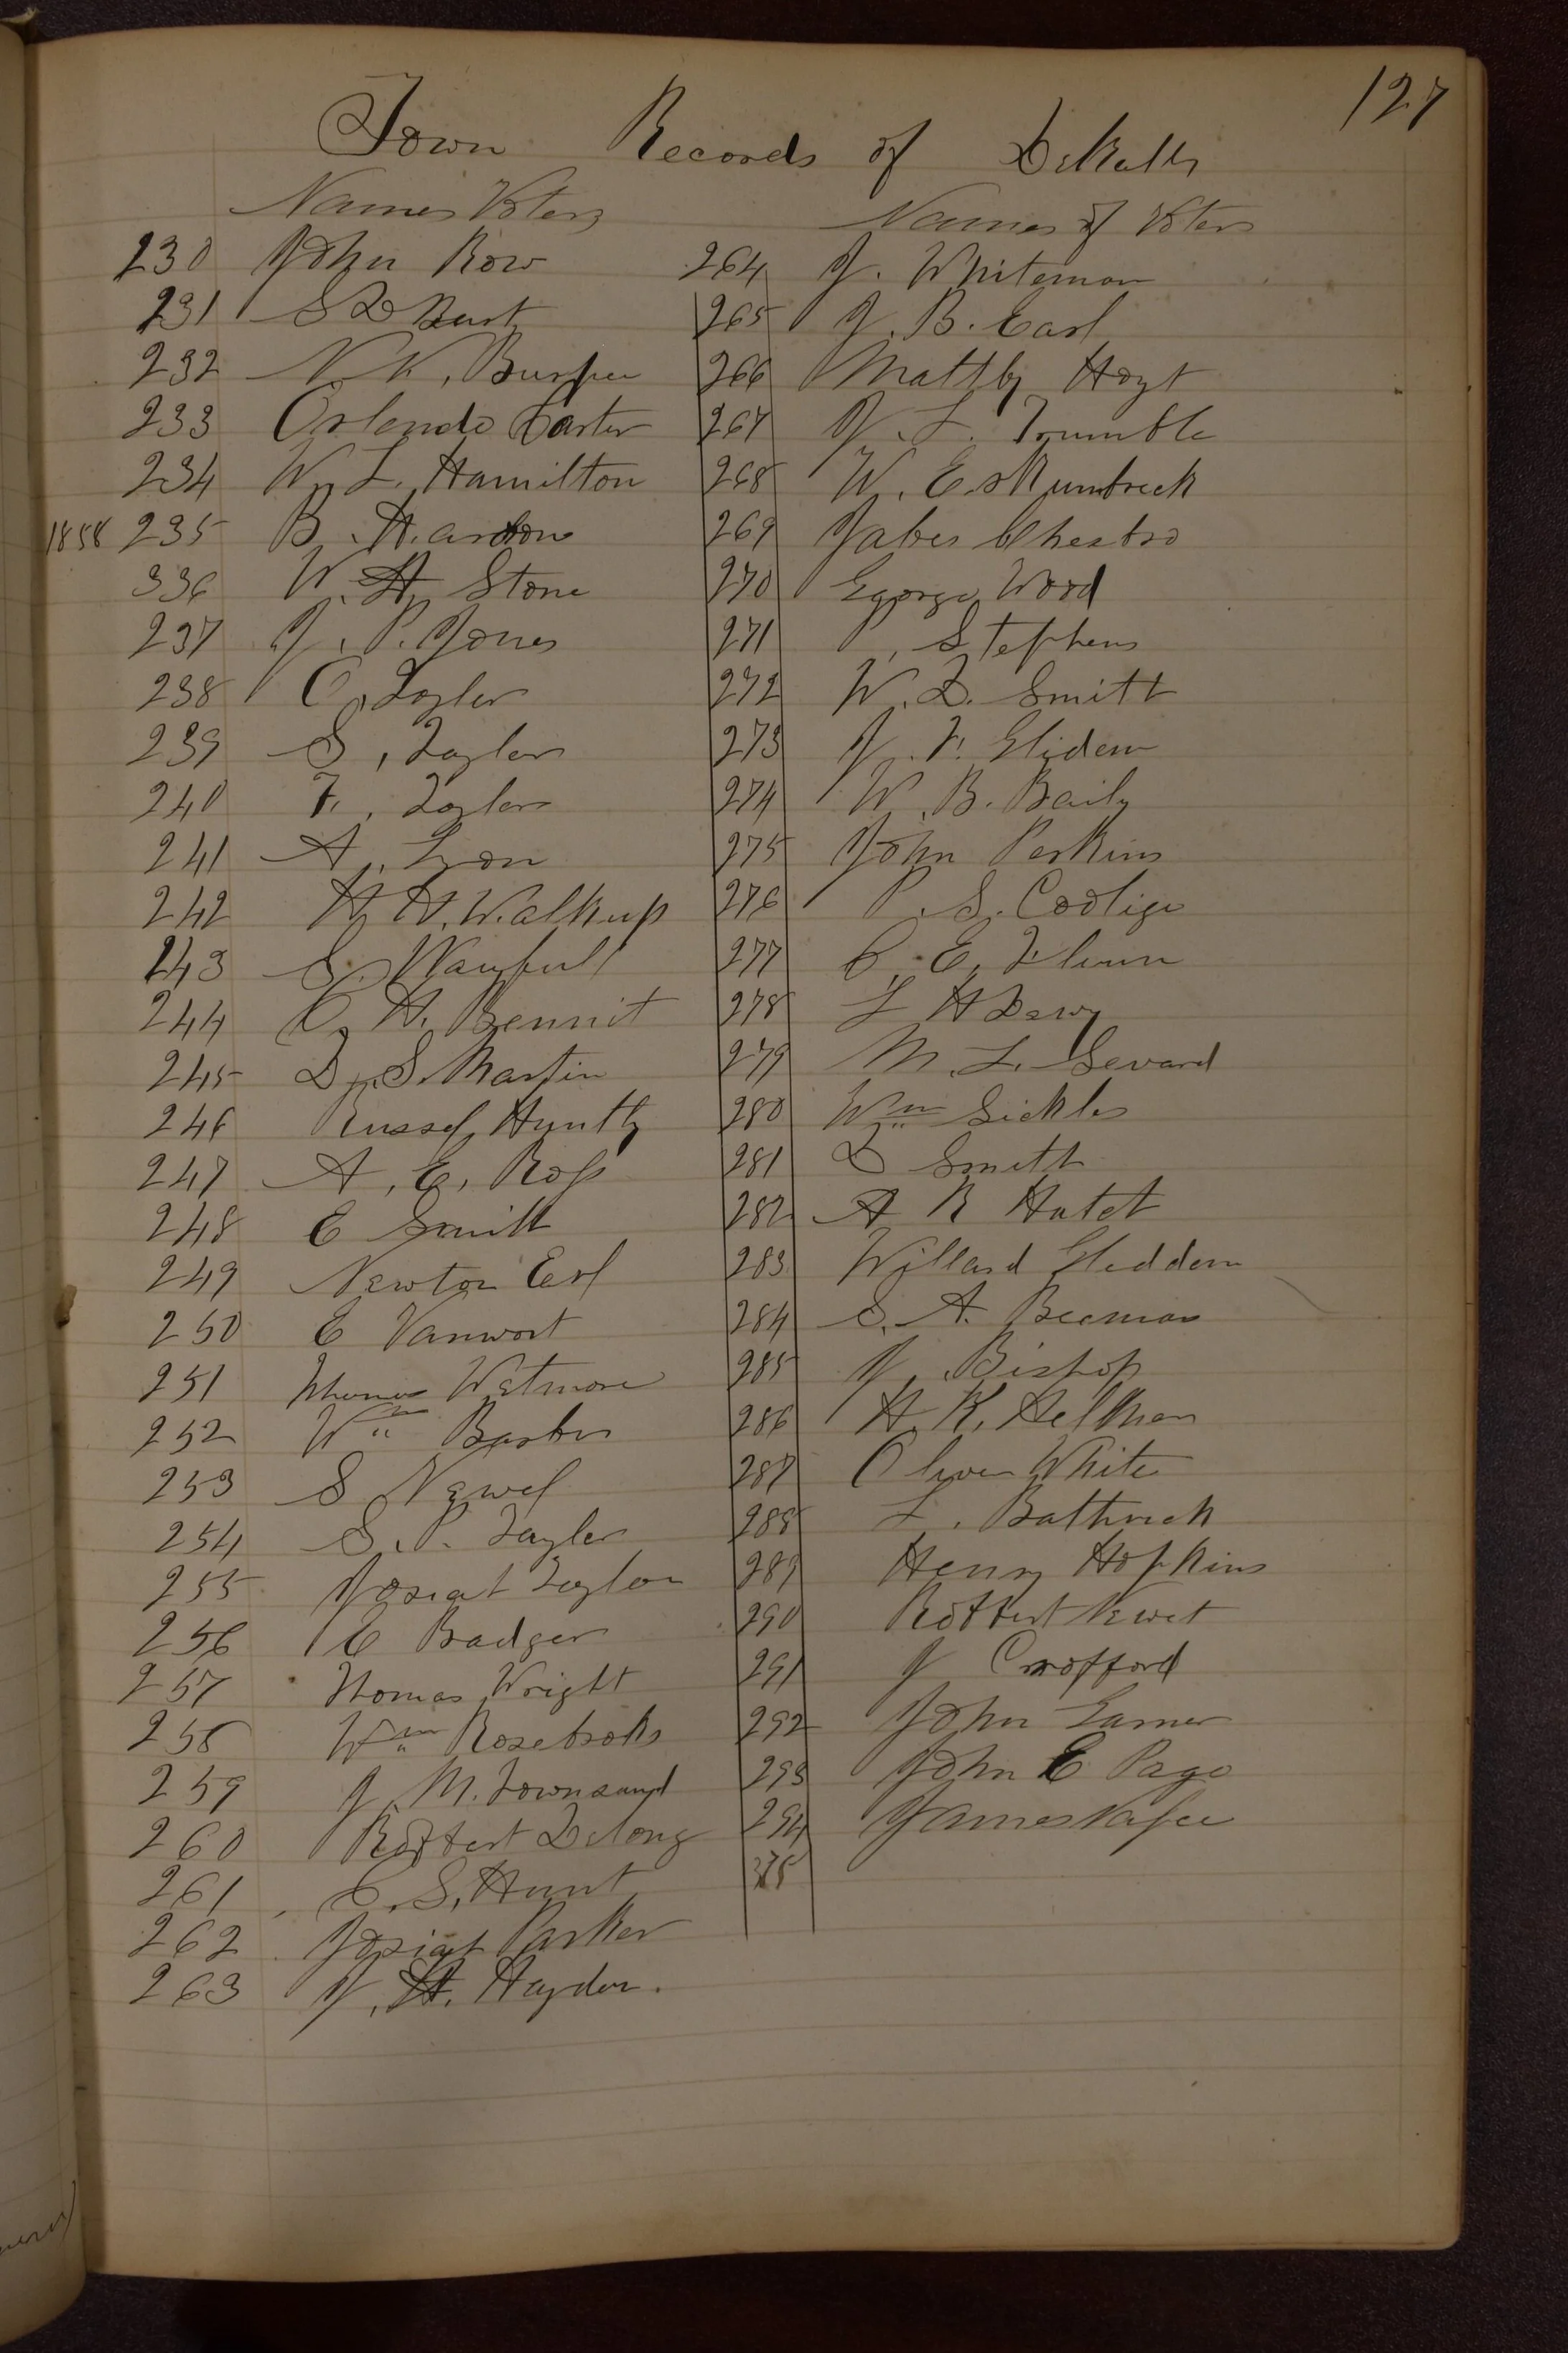 127
Town Records of DeKalb
Names Voters
230 John Row
231 S D Hurt
232 N. K. Burpee
233 Orlendo Carter
234 W. L. Hamilton
1858 235 B. Hardon
336 W. H. Stone
237 J. P. Jones
238 C. Taylor
239 S. Taylor
240 F. Taylor
241 A. Lyon
242 H. H. Walkup
243 S.
244 C. H. Bennit
245 D. S. Martin
246 Russel Huntly
247 A. E. Ross
248 E Smith
249 Newton Earl
250 E Vanwort
251 Thomas Wetmore
252 Wm Barber
253 S Newel
254 S. P. Tayler
255 Josiat Taylor
256 C Badger
257 Thomas Wright
258 Wm Rosebroks
259 J. M. Townsand
260 Robbert Delong
261 C. S. Hunt
262 Josiat Parker
263 J. H. Hayden.
Names of Voters
264 J. Whiteman
265 J. B. Earl
266 Maltby Hoyt
267 J. L. Trumble
268 W. Eskumbreck
269 Jabes Chesbro
270 Egorge Wood
271 Stephens
272 W. D. Smitt
273 J. F. Gliden
274 W. B. Baily
275 John Perkins
276 P. S. Coolige
277 C. E. Flinn
278 L H Dewy
279 M. L. Sevard
280 Wm Sickles
281 D Smith
282 A R Hatct
283 Willard Gleddem
284 S. A. Beeman
285 J. Bishop
286 H. K. Helkman
287 Oliver White
288 L. Bathrick
289 Henry Hopkins
290 Robbert Newet
291 J Crofford
292 John Garner
293 John E Page
294 James
375